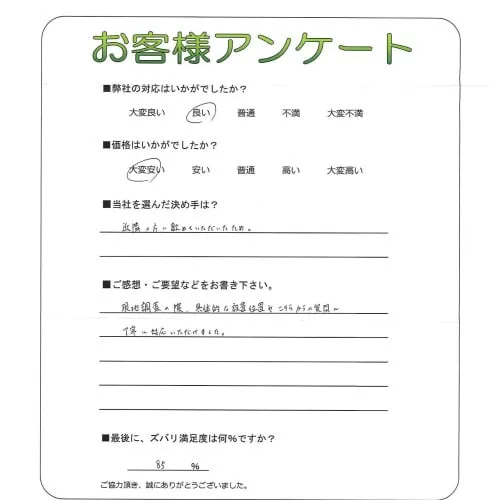 お客様アンケート
■弊社の対応はいかがでしたか?
大変良い 良い 普通 不満 大変不満
■価格はいかがでしたか?
大変安い 安い 普通 高い 大変高い
■当社を選んだ決め手は?
近隣の方に勧めていただいたため。
■ご感想・ご要望などをお書き下さい。
現地調査の際、具体的な設置位置やこちらからの質問に
丁寧に対応いただけました。
■最後に、ズバリ満足度は何%ですか?
85 %
ご協力頂き、誠にありがとうございました。